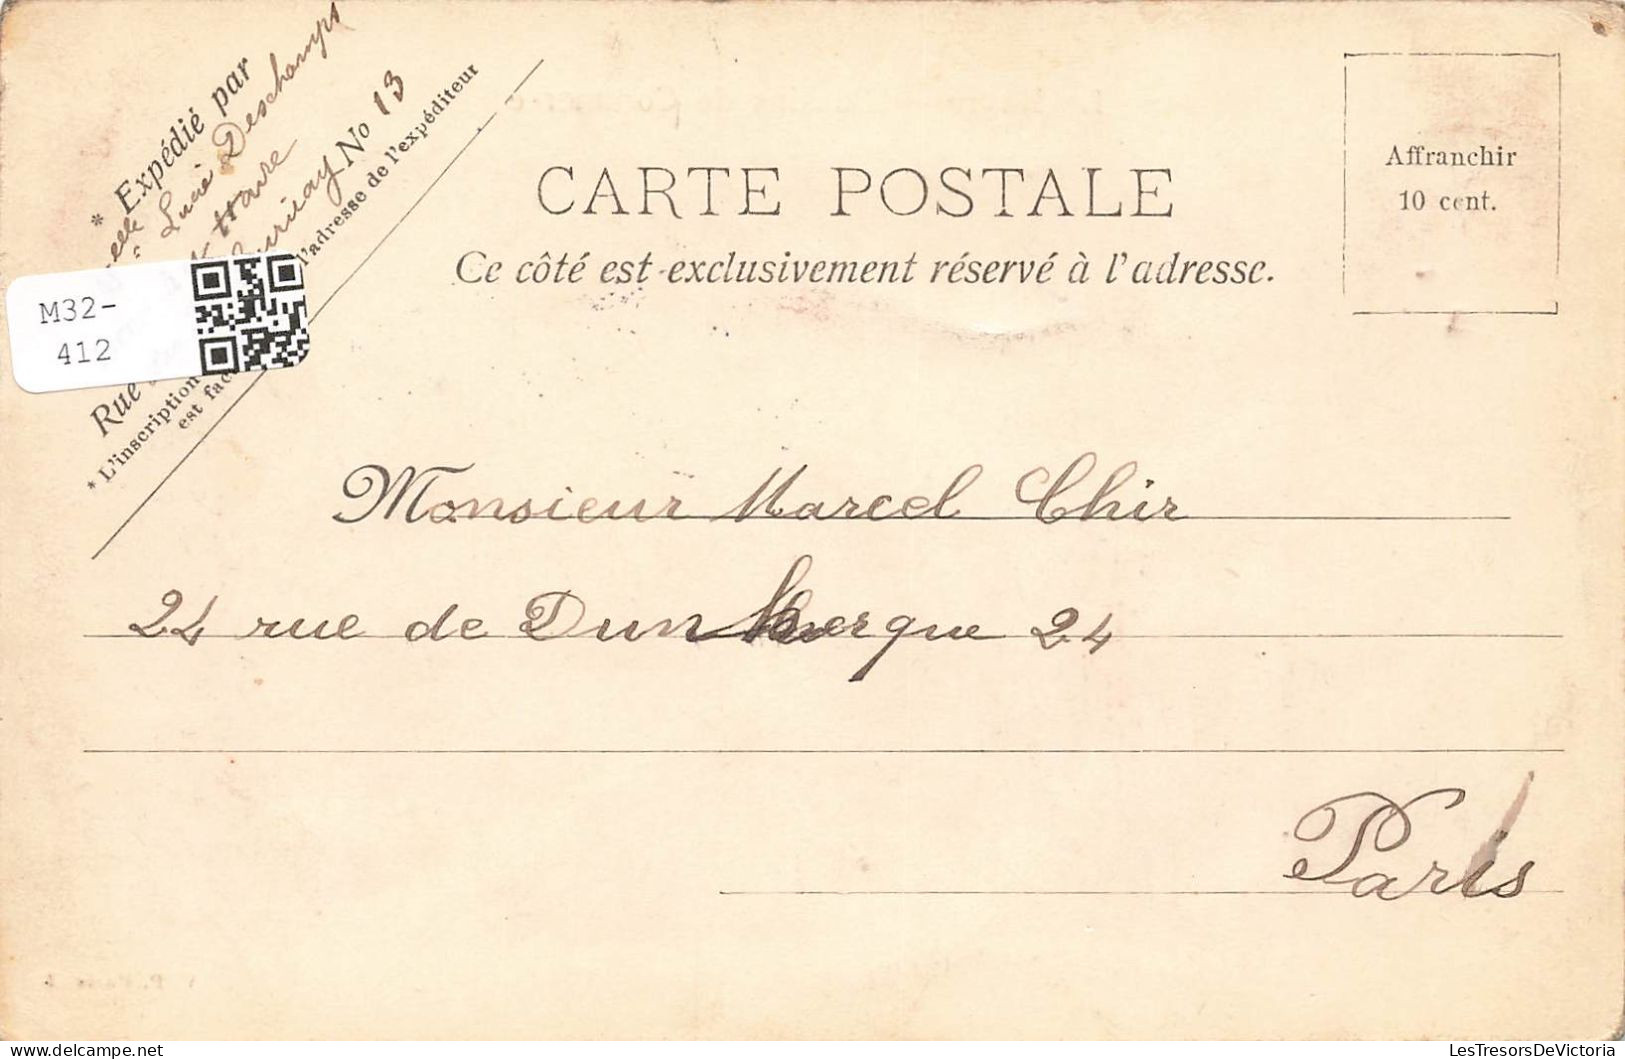 * Expédié par
Lucie Deschamps
Havre
No 13
Rue
* L'inscription l'adresse de l'expéditeur
est fac
M32-
412
CARTE POSTALE
Ce côté est exclusivement réservé à l'adresse.
Affranchir
10 cent.
Monsieur Marcel Chir
24 rue de Dunkerque 24
Paris
LesTresorsDeVictoria